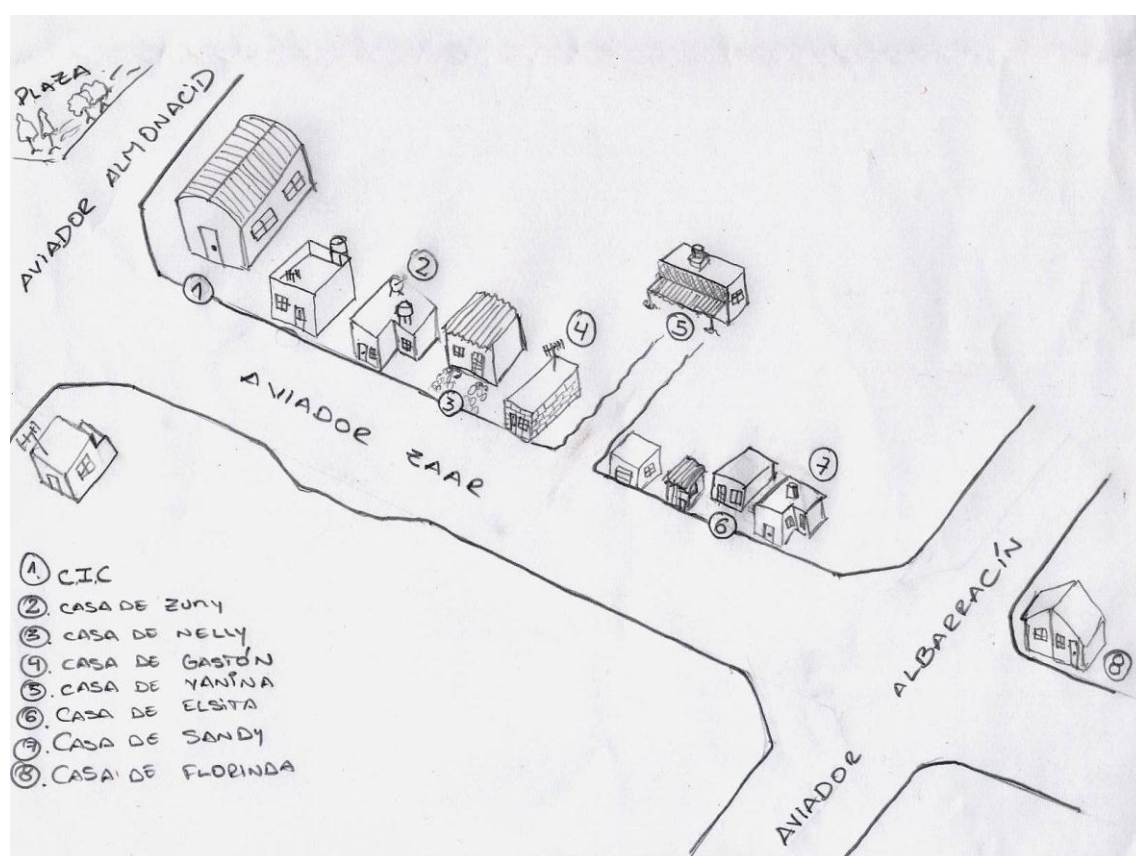 PLAZA
AVIADOR ALMONACID
1
2
3
4
5
AVIADOR ZAAR
6
7
AVIADOR ALBARRACÍN
8
1. C.I.C
2. CASA DE ZUMY
3. CASA DE NELLY
4. CASA DE GASTÓN
5. CASA DE YANINA
6. CASA DE ELSITA
7. CASA DE SANDY
8. CASA DE FLORINDA